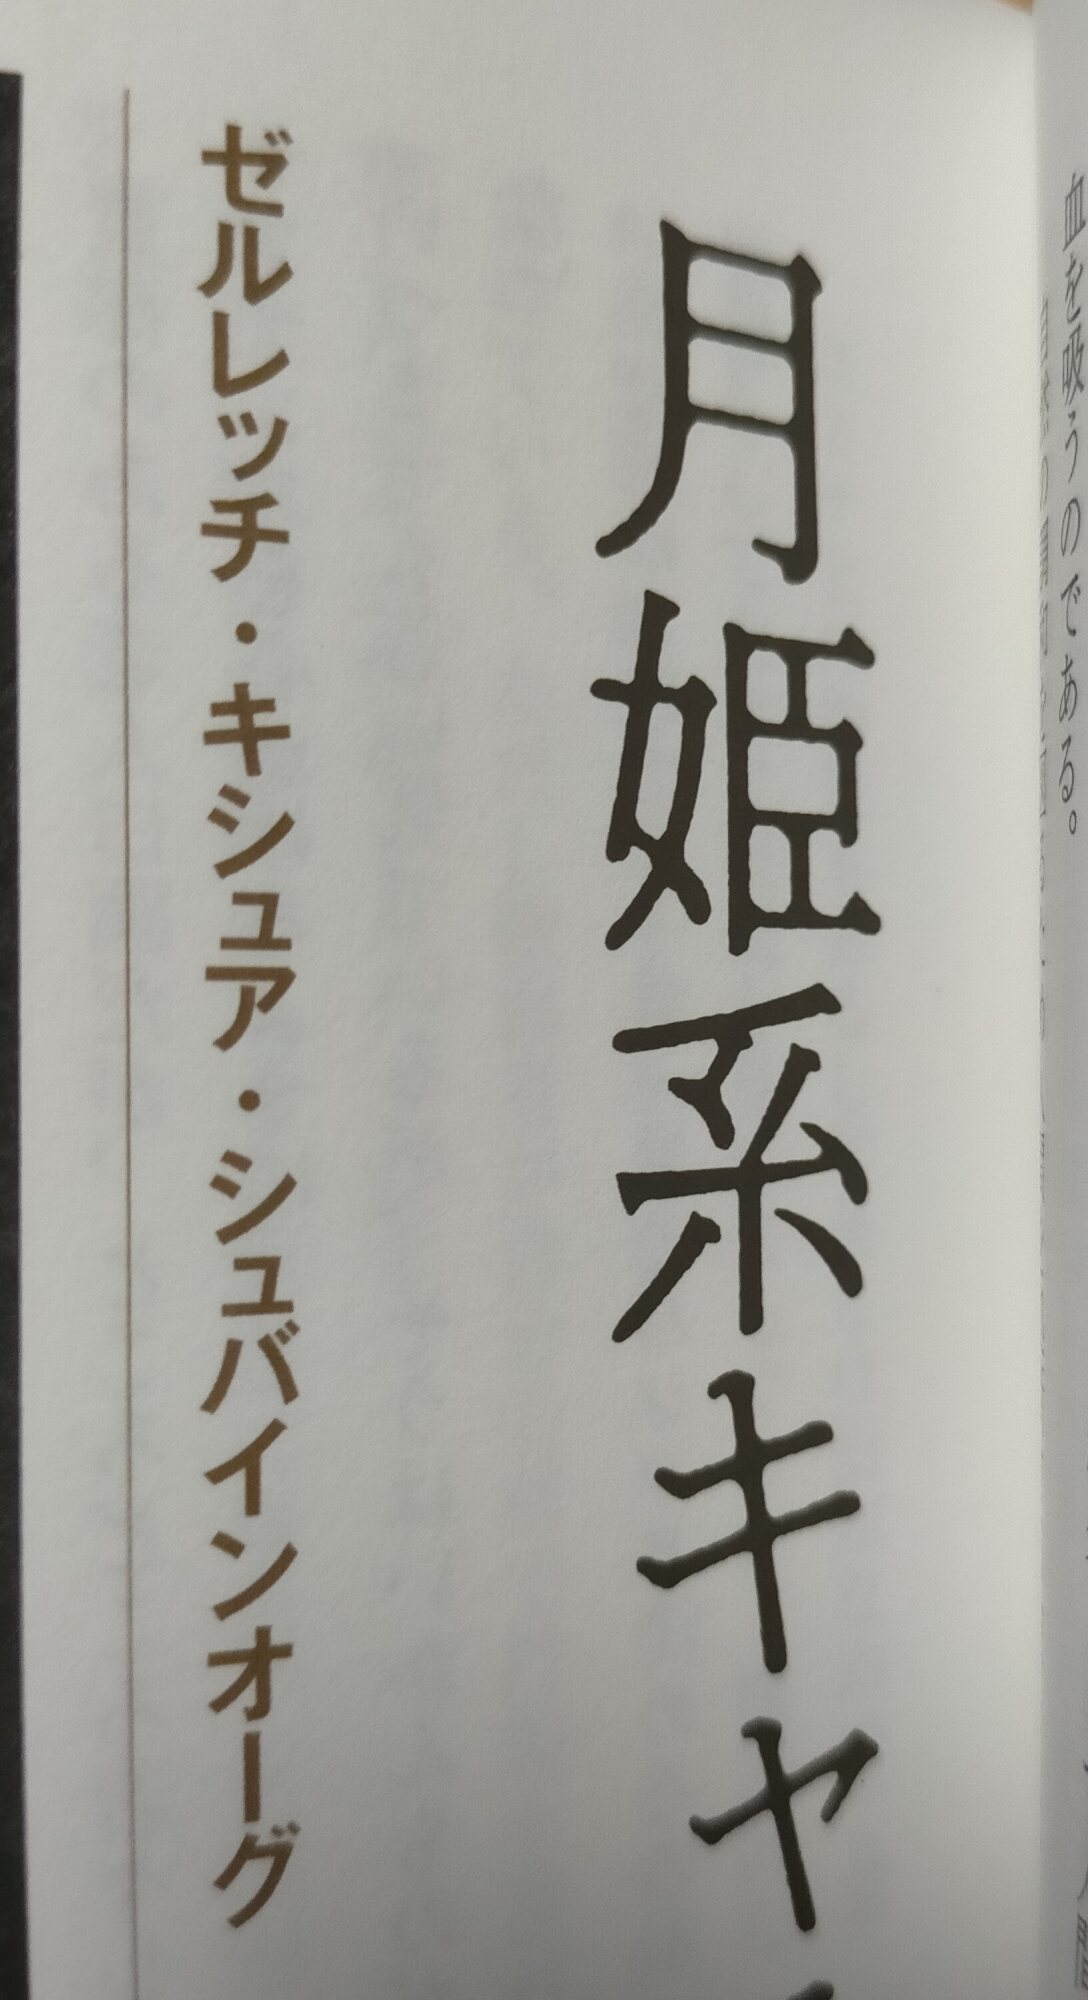 血を吸うのである。
月姫系キャ
ゼルレッチ・キシュア・シュバインオーグ